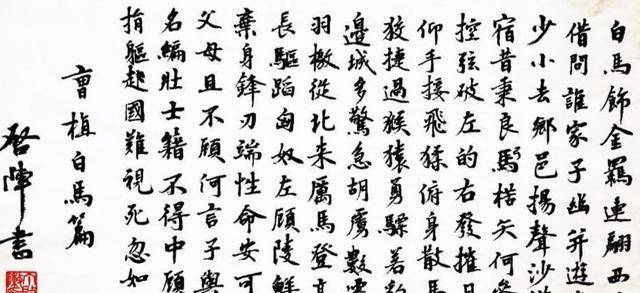 白馬飾金羈連翩西
借問誰家子幽并遊
少小去鄉邑揚聲沙
宿昔秉良馬弓楛矢何
控弦破左的右發摧
仰手接飛猱俯身散馬
狡捷過猴猿勇剽若
邊城多驚急胡虜數
羽檄從北来厲馬登
長驅蹈匈奴左顧陵鮮
棄身鋒刃端性命安可
父母且不顧何言子與
名編壯士籍不得中顧
捐軀赴國難視死忽如
曹植白馬篇
启陣書